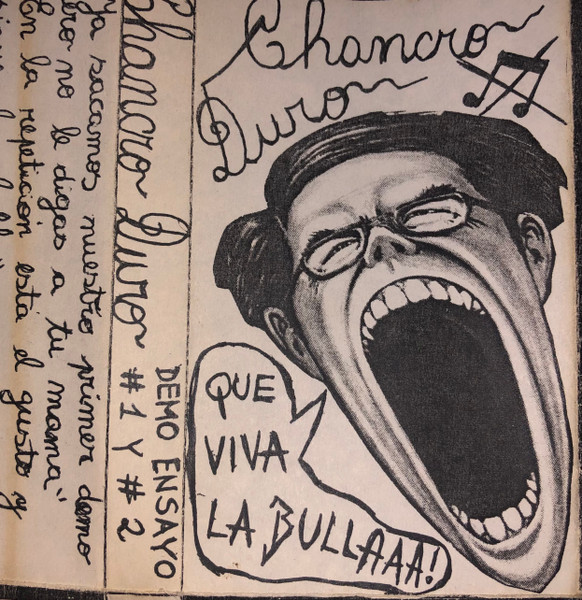 Chancro
Duro
QUE
VIVA
LA BULLAAA!
Chancro Duro
DEMO ENSAYO
# 1 Y # 2
ya sacamos nuestro primer demo
no le digas a tu mama"
En la repetición está el gusto y